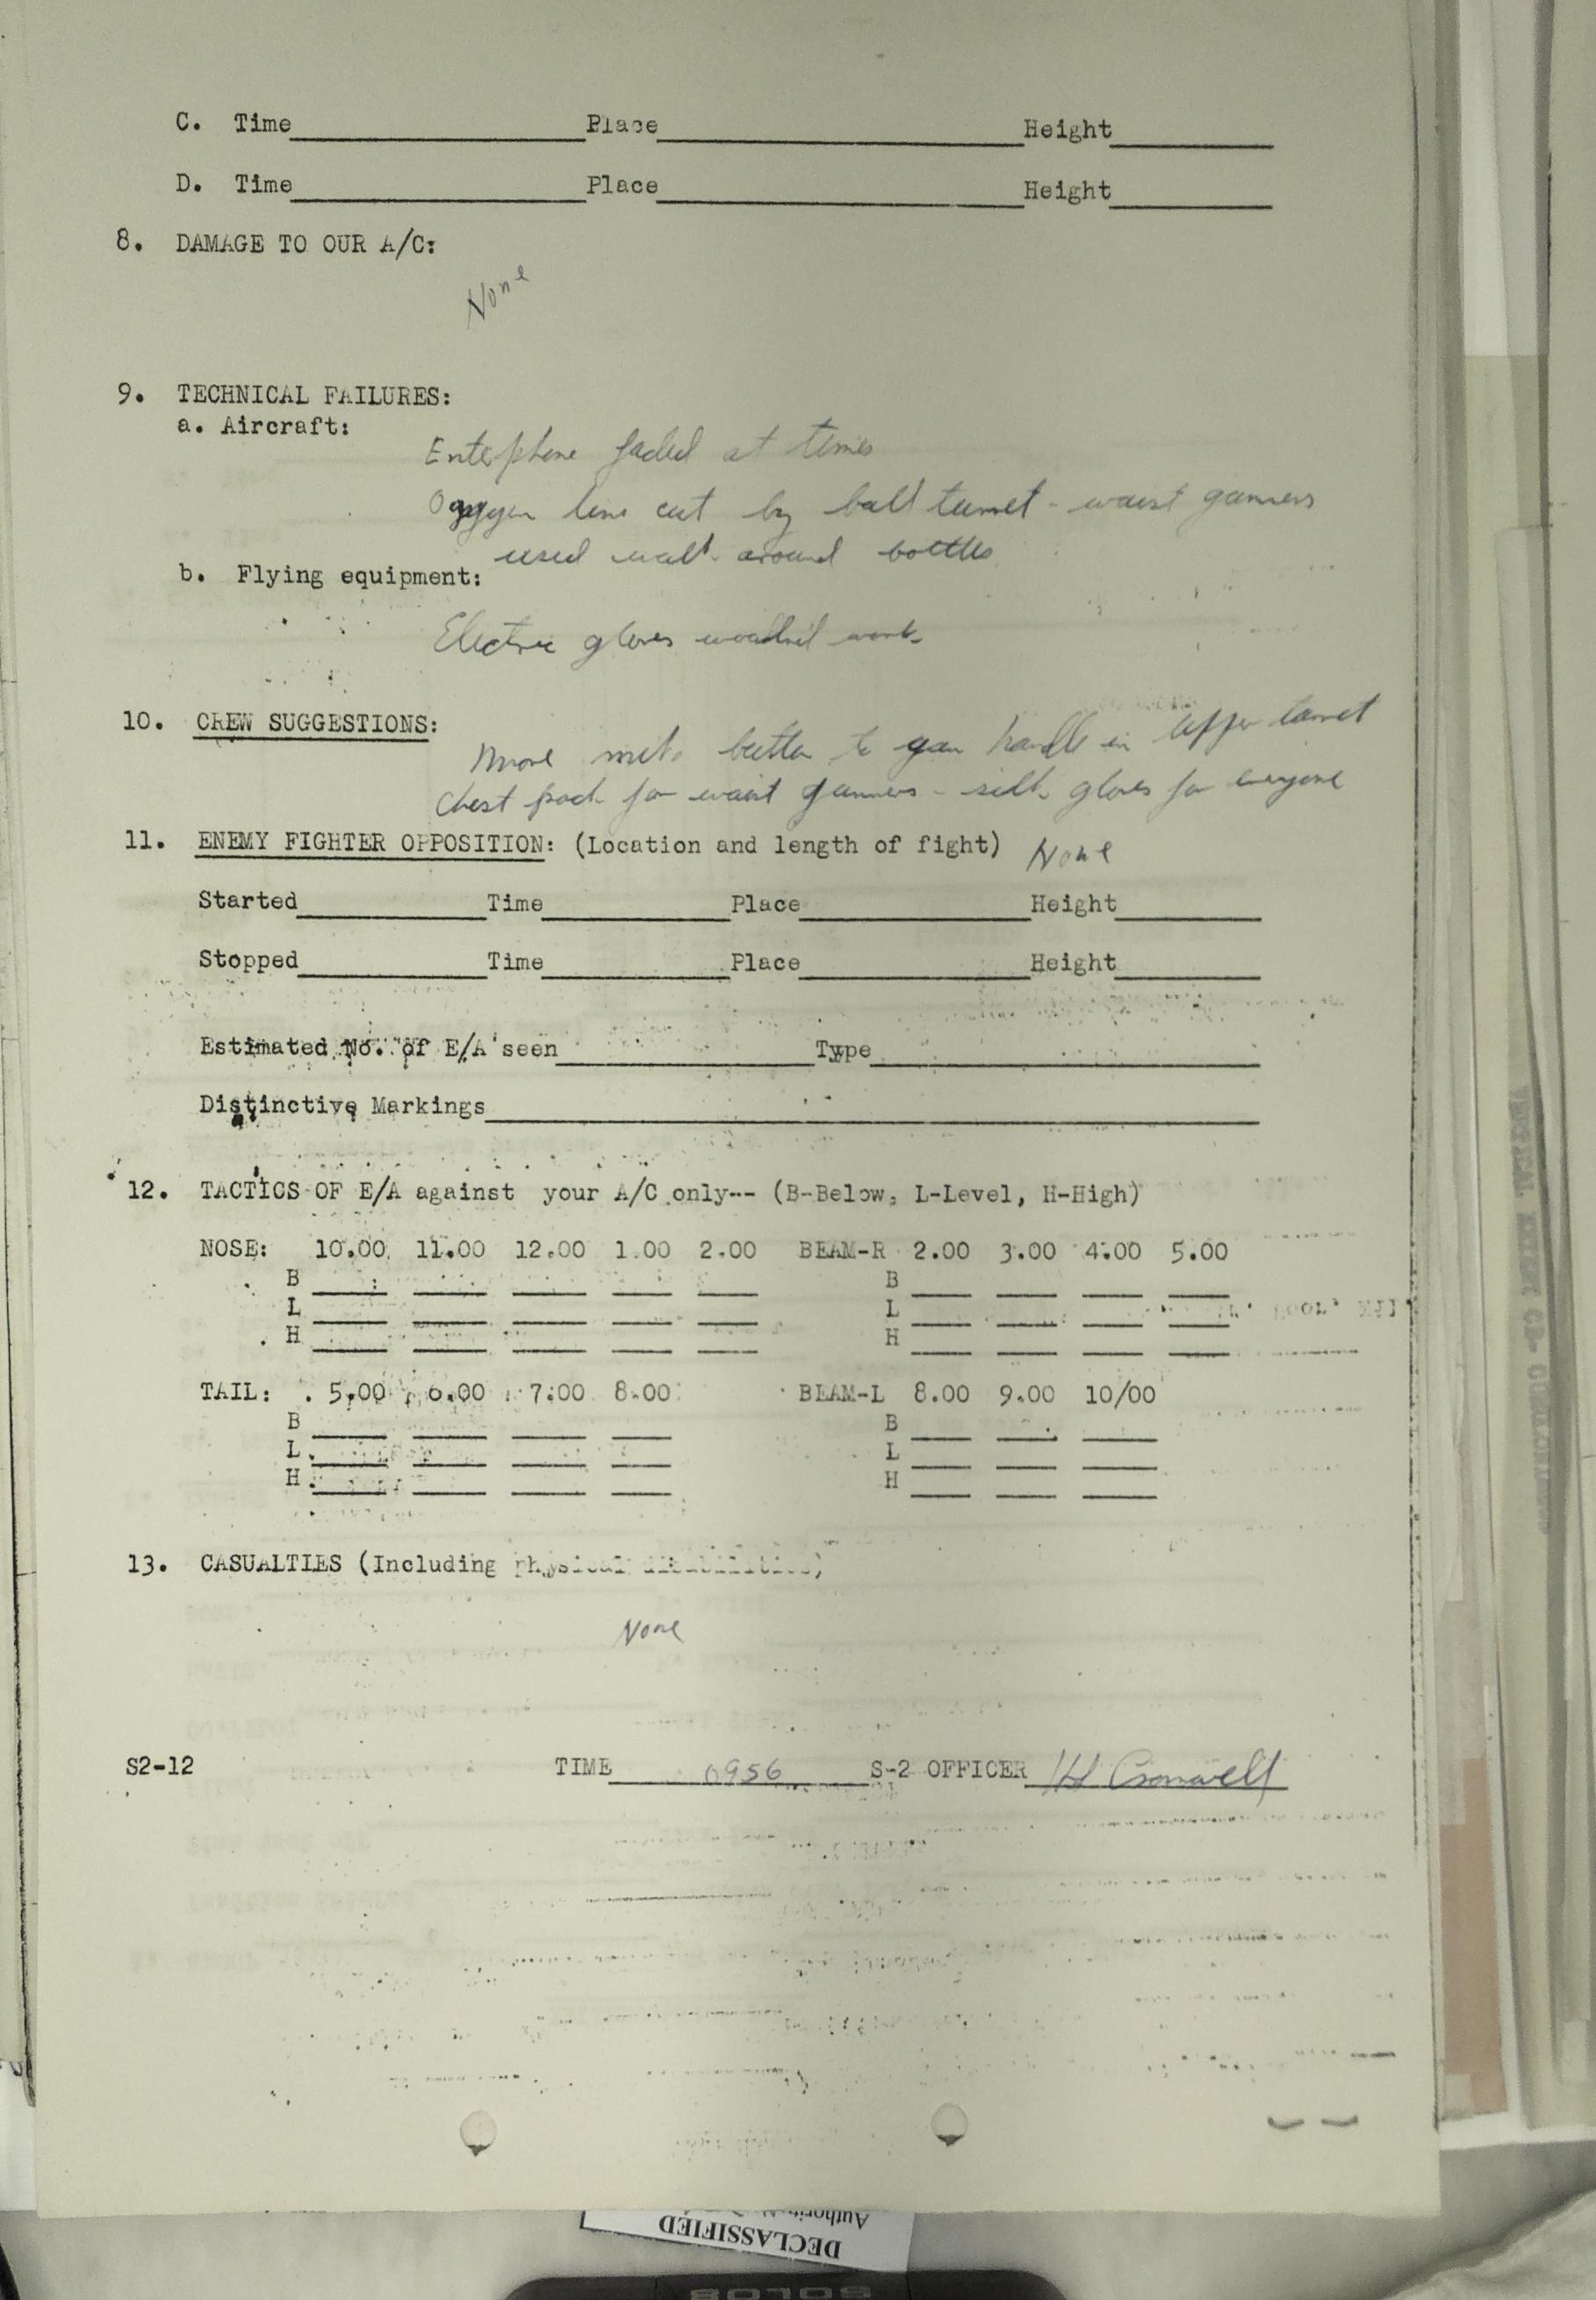 C. Time Place Height
D. Time Place Height
8. DAMAGE TO OUR A/C:
None
9. TECHNICAL FAILURES:
a. Aircraft:
Enterphone faded at times
Oxygen line cut by ball turret - waist gunners
used walk around bottles
b. Flying equipment:
Electric gloves wouldn't work
10. CREW SUGGESTIONS:
Move button to gun handle in upper turret
Chest pack for waist gunners - silk gloves for everyone
11. ENEMY FIGHTER OPPOSITION: (Location and length of fight) None
Started Time Place Height
Stopped Time Place Height
Estimated No. of E/A seen Type
Distinctive Markings
12. TACTICS OF E/A against your A/C only-- (B-Below, L-Level, H-High)
NOSE: 10.00 11.00 12.00 1.00 2.00 BEAM-R 2.00 3.00 4.00 5.00
B B
L L
H H
TAIL: 5.00 6.00 7.00 8.00 BEAM-L 8.00 9.00 10/00
B B
L L
H H
13. CASUALTIES (Including physical disabilities)
None
S2-12 TIME 0956 S-2 OFFICER HH Cromwell
DECLASSIFIED